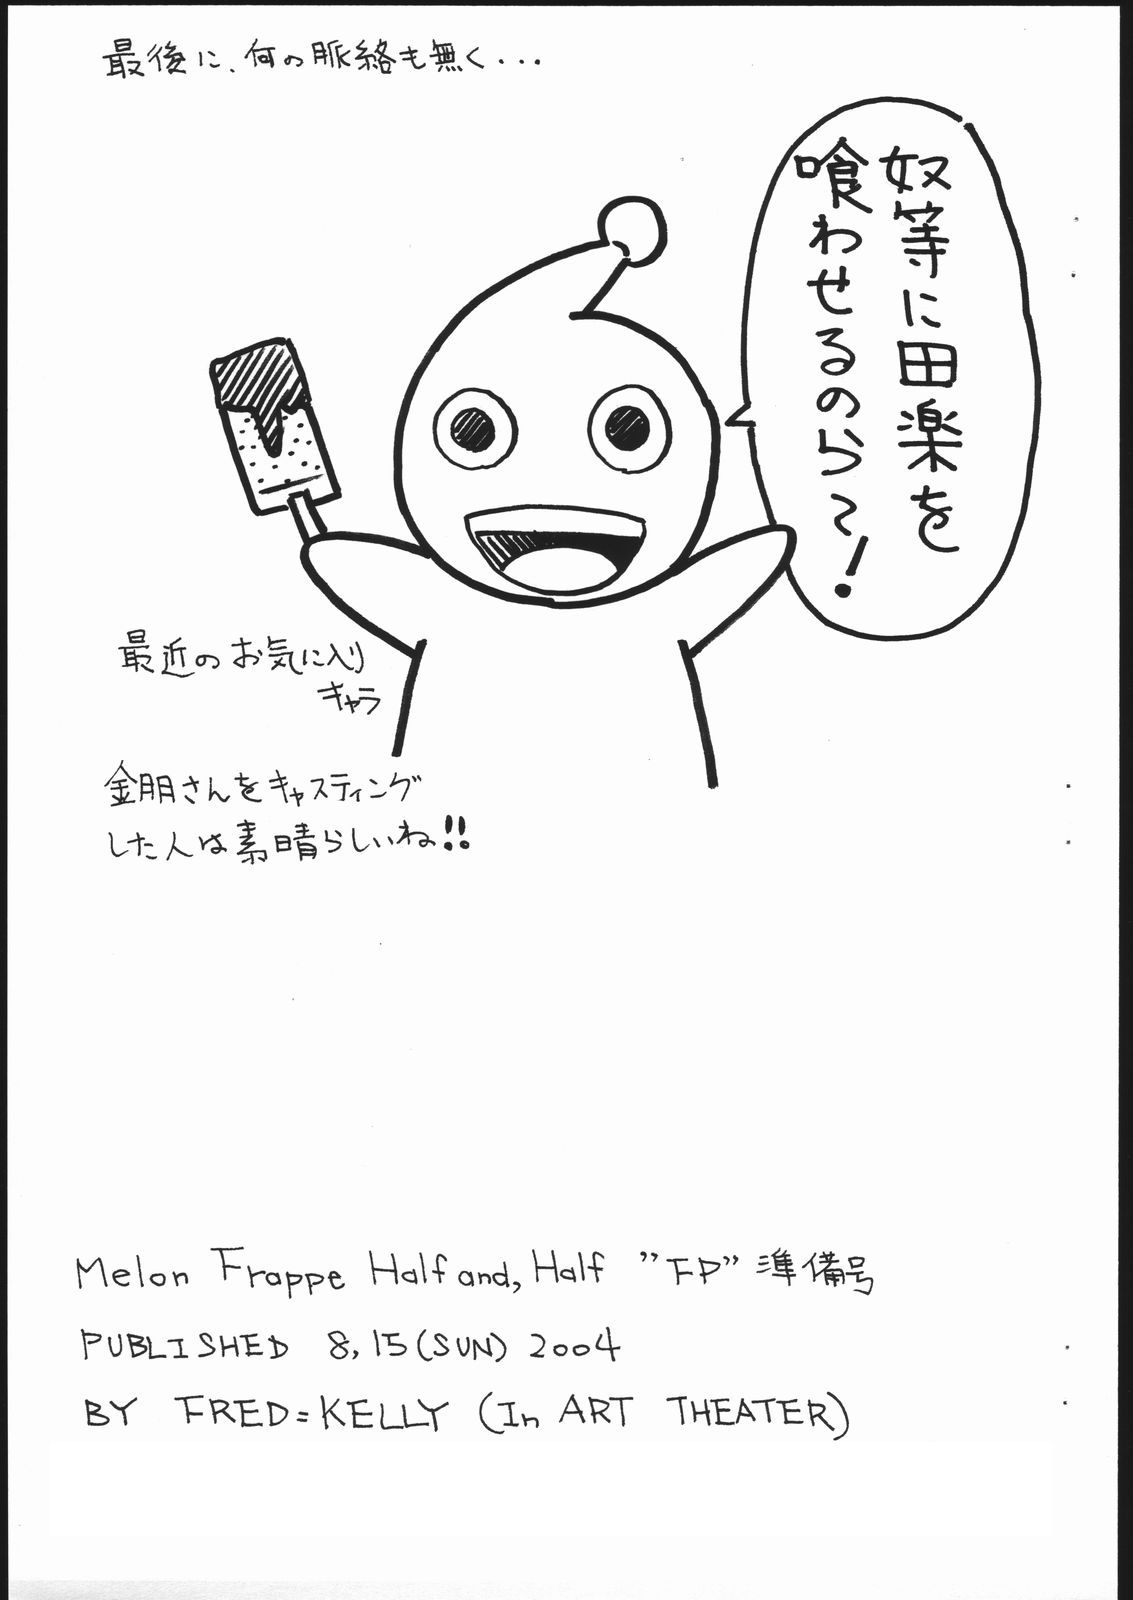 最後に、何の脈絡も無く...
奴等に田楽を
喰わせるのらて!
最近のお気に入り
キャラ
金朋さんをキャスティング
した人は素晴らしいね!!
Melon Frappe Half and, Half "FP" 準備号
PUBLISHED 8,15(SUN) 2004
BY FRED=KELLY (In ART THEATER)